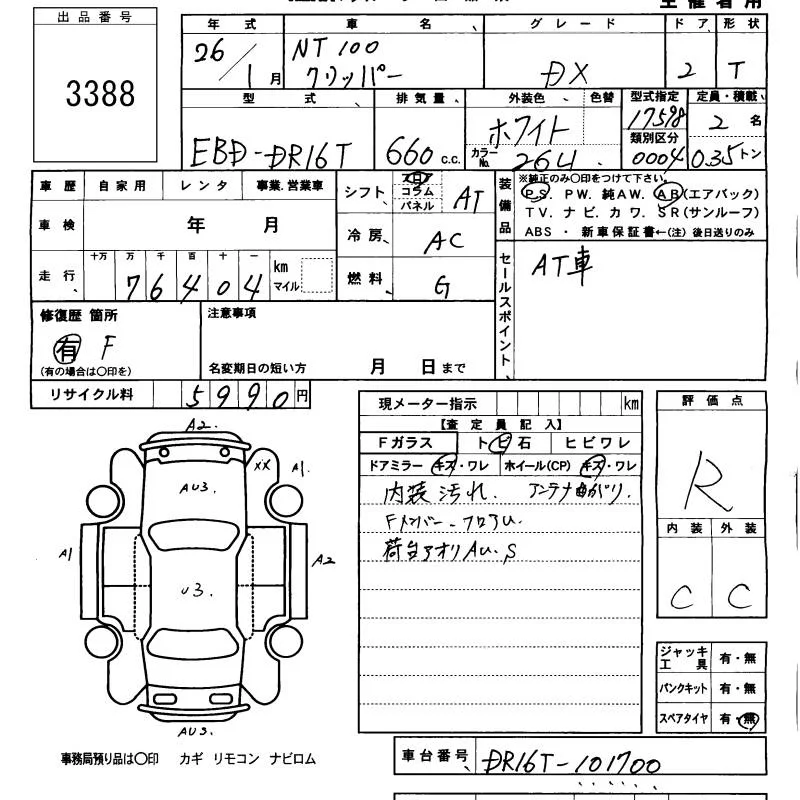 出品番号
3388
年式 車名 グレード ドア 形状
26/1月 NT100 クリッパー DX 2 T
型式 排気量 外装色 色替 型式指定 定員・積載
EBD-DR16T 660c.c. ホワイト 17598 2名
類別区分
カラーNo. 26U 0004 0.35トン
車歴 自家用 レンタ 事業.営業車
車検 年 月
走行 十万 万 千 百 十 一
76404 km マイル
シフト フロア コラム パネル AT
冷房 AC
燃料 G
装備品
※純正のみ〇印をつけて下さい
PS. PW. 純AW. AB(エアバック)
TV. ナビ. カワ. SR(サンルーフ)
ABS ・ 新車保証書←(注) 後日送りのみ
セールスポイント
AT車
修復歴 箇所
有 F
(有の場合は〇印を)
注意事項
名変期日の短い方 月 日まで
リサイクル料 5990円
現メーター指示 km
【査定員記入】
Fガラス トビ石 ヒビワレ
ドアミラー キズ・ワレ ホイール(CP) キズ・ワレ
内装汚れ. アンテナ曲がり.
Fメンバー-フロアU.
荷台アオリAU.S
評価点
R
内装 外装
C C
A2.
XX A1.
AU3.
A1 A2
U3.
AU3.
ジャッキ工具 有・無
パンクキット 有・無
スペアタイヤ 有・無
事務局預り品は〇印 カギ リモコン ナビロム
車台番号 DR16T-101700